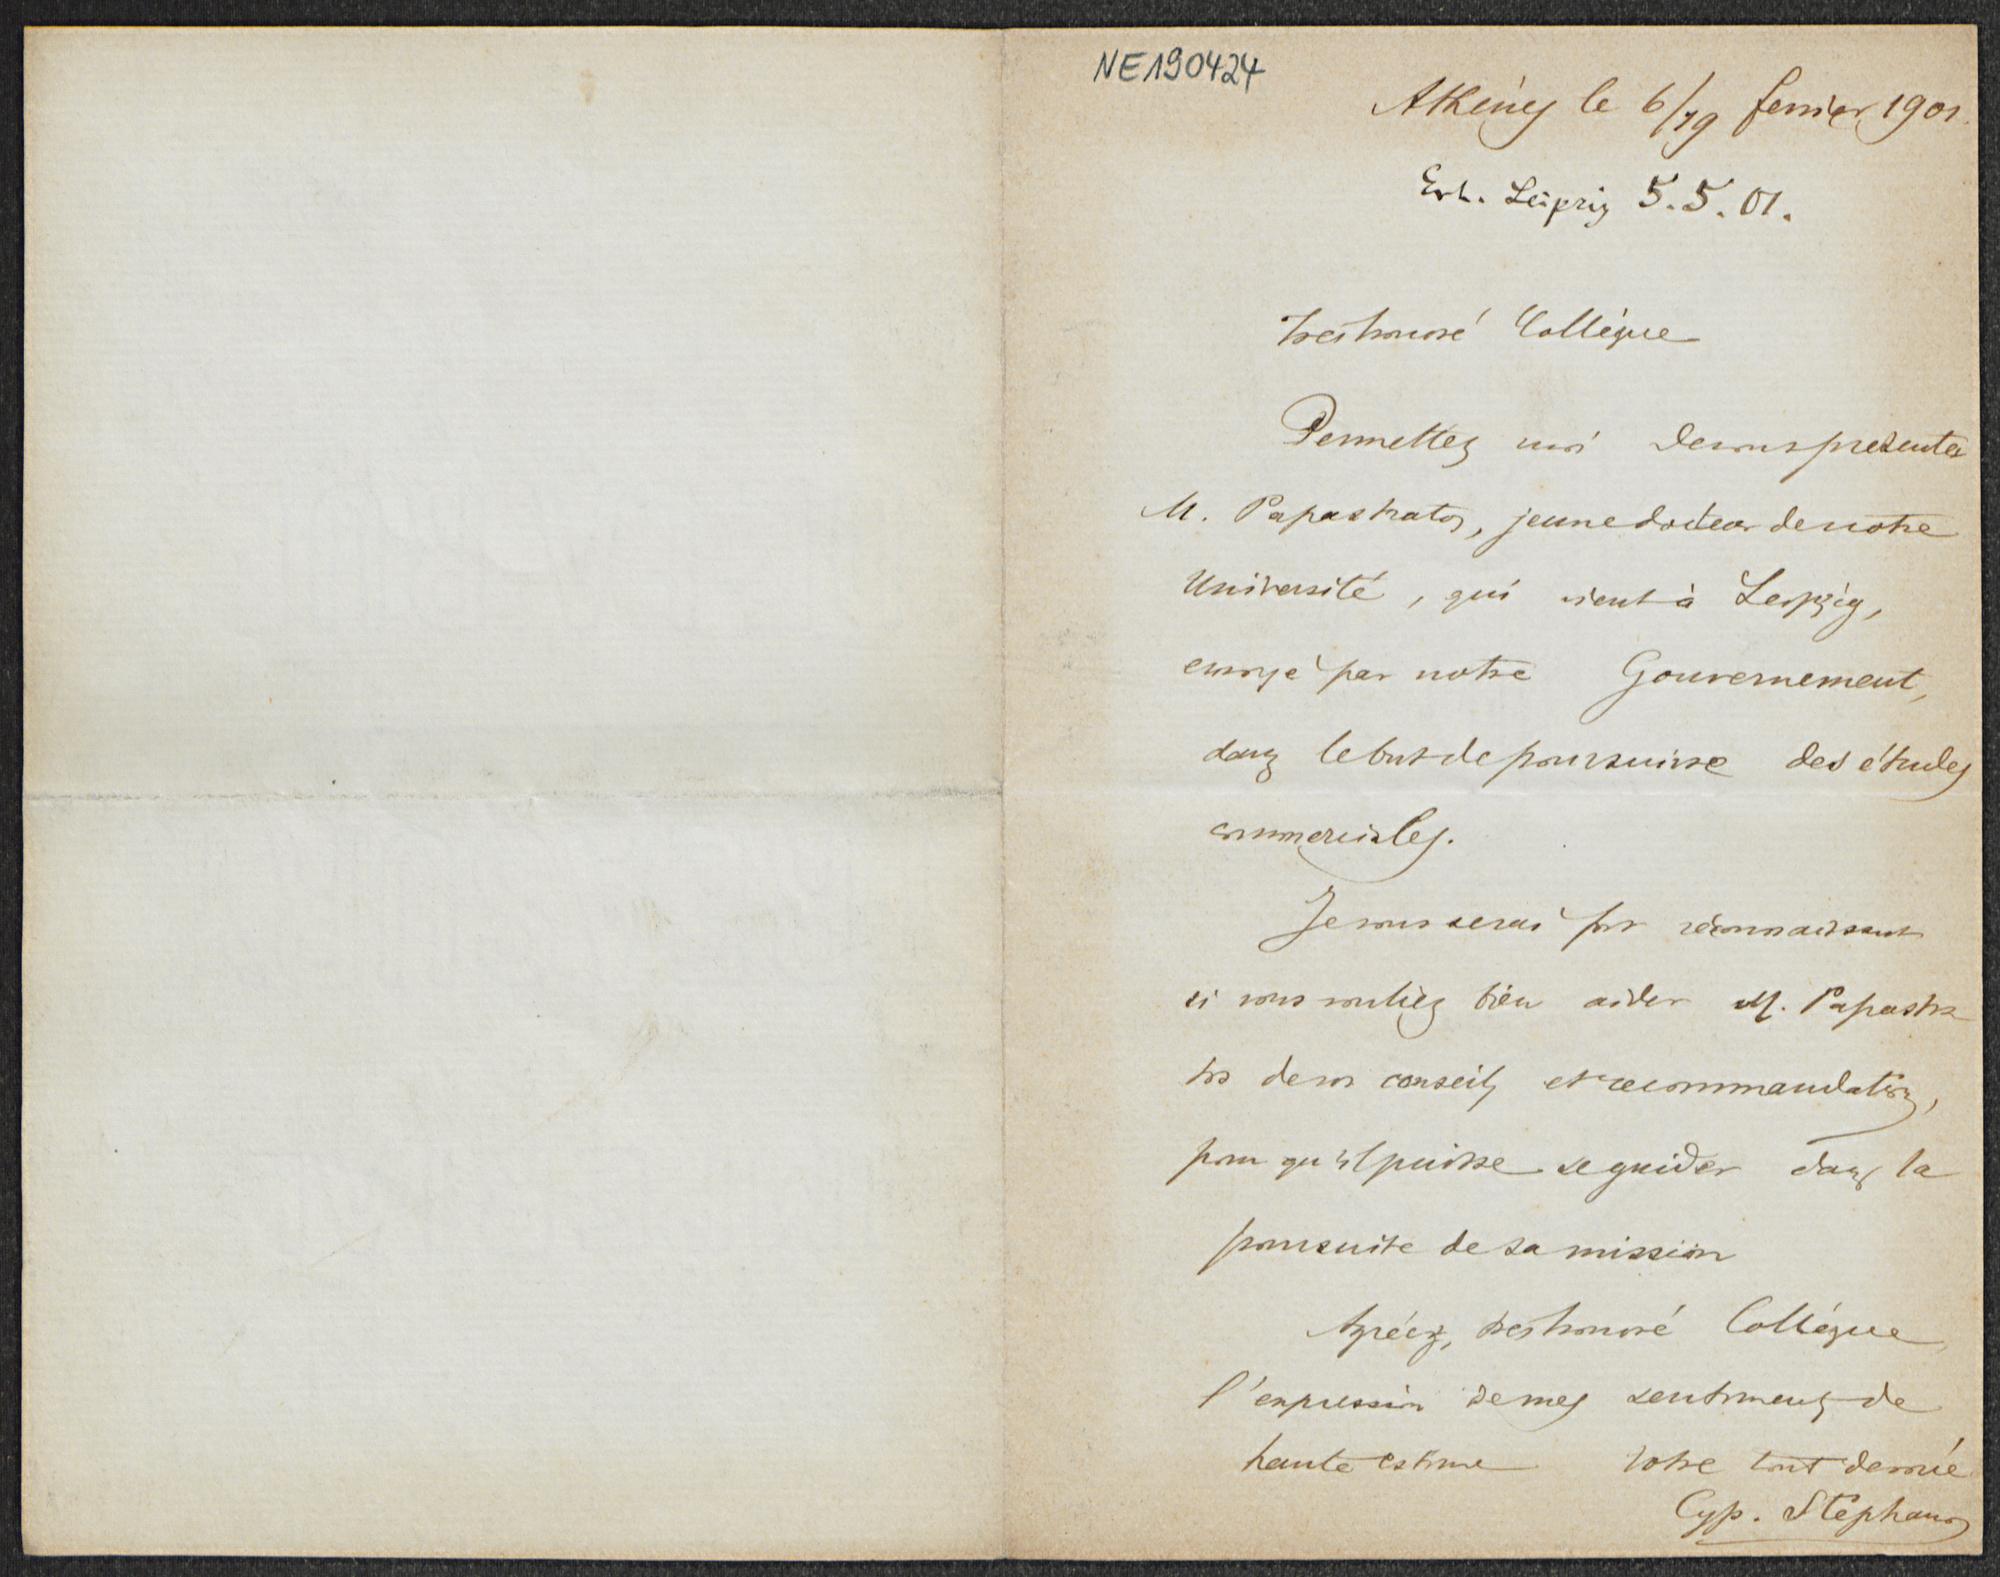 NE190424
Athènes le 6/19 fevrier 1901.
Erh. Leipzig 5.5.01.
Tres honoré Collègue
Permettez moi de vous presenter
M. Papastratos, jeune docteur de notre
Université, qui vient à Leipzig,
envoyé par notre Gouvernement,
dans le but de poursuivre des études
commerciales.
Je vous serai fort reconnaissant
si vous vouliez bien aider M. Papastra
tos de vos conseils et recommandations,
pour qu'il puisse se guider dans la
poursuite de sa mission
Agréez, tres honoré Collègue
l'expression de mes sentiments de
haute estime Votre tout devoué
Cyp. Stephanos